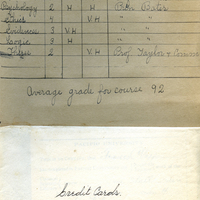 Psychology 2 H H Prof. Bates
Ethics 4 V.H " "
Evidences 3 V.H " "
Logic 3 H " "
2 V.H Prof. Taylor &
Average grade for course 92
Credit Cards.